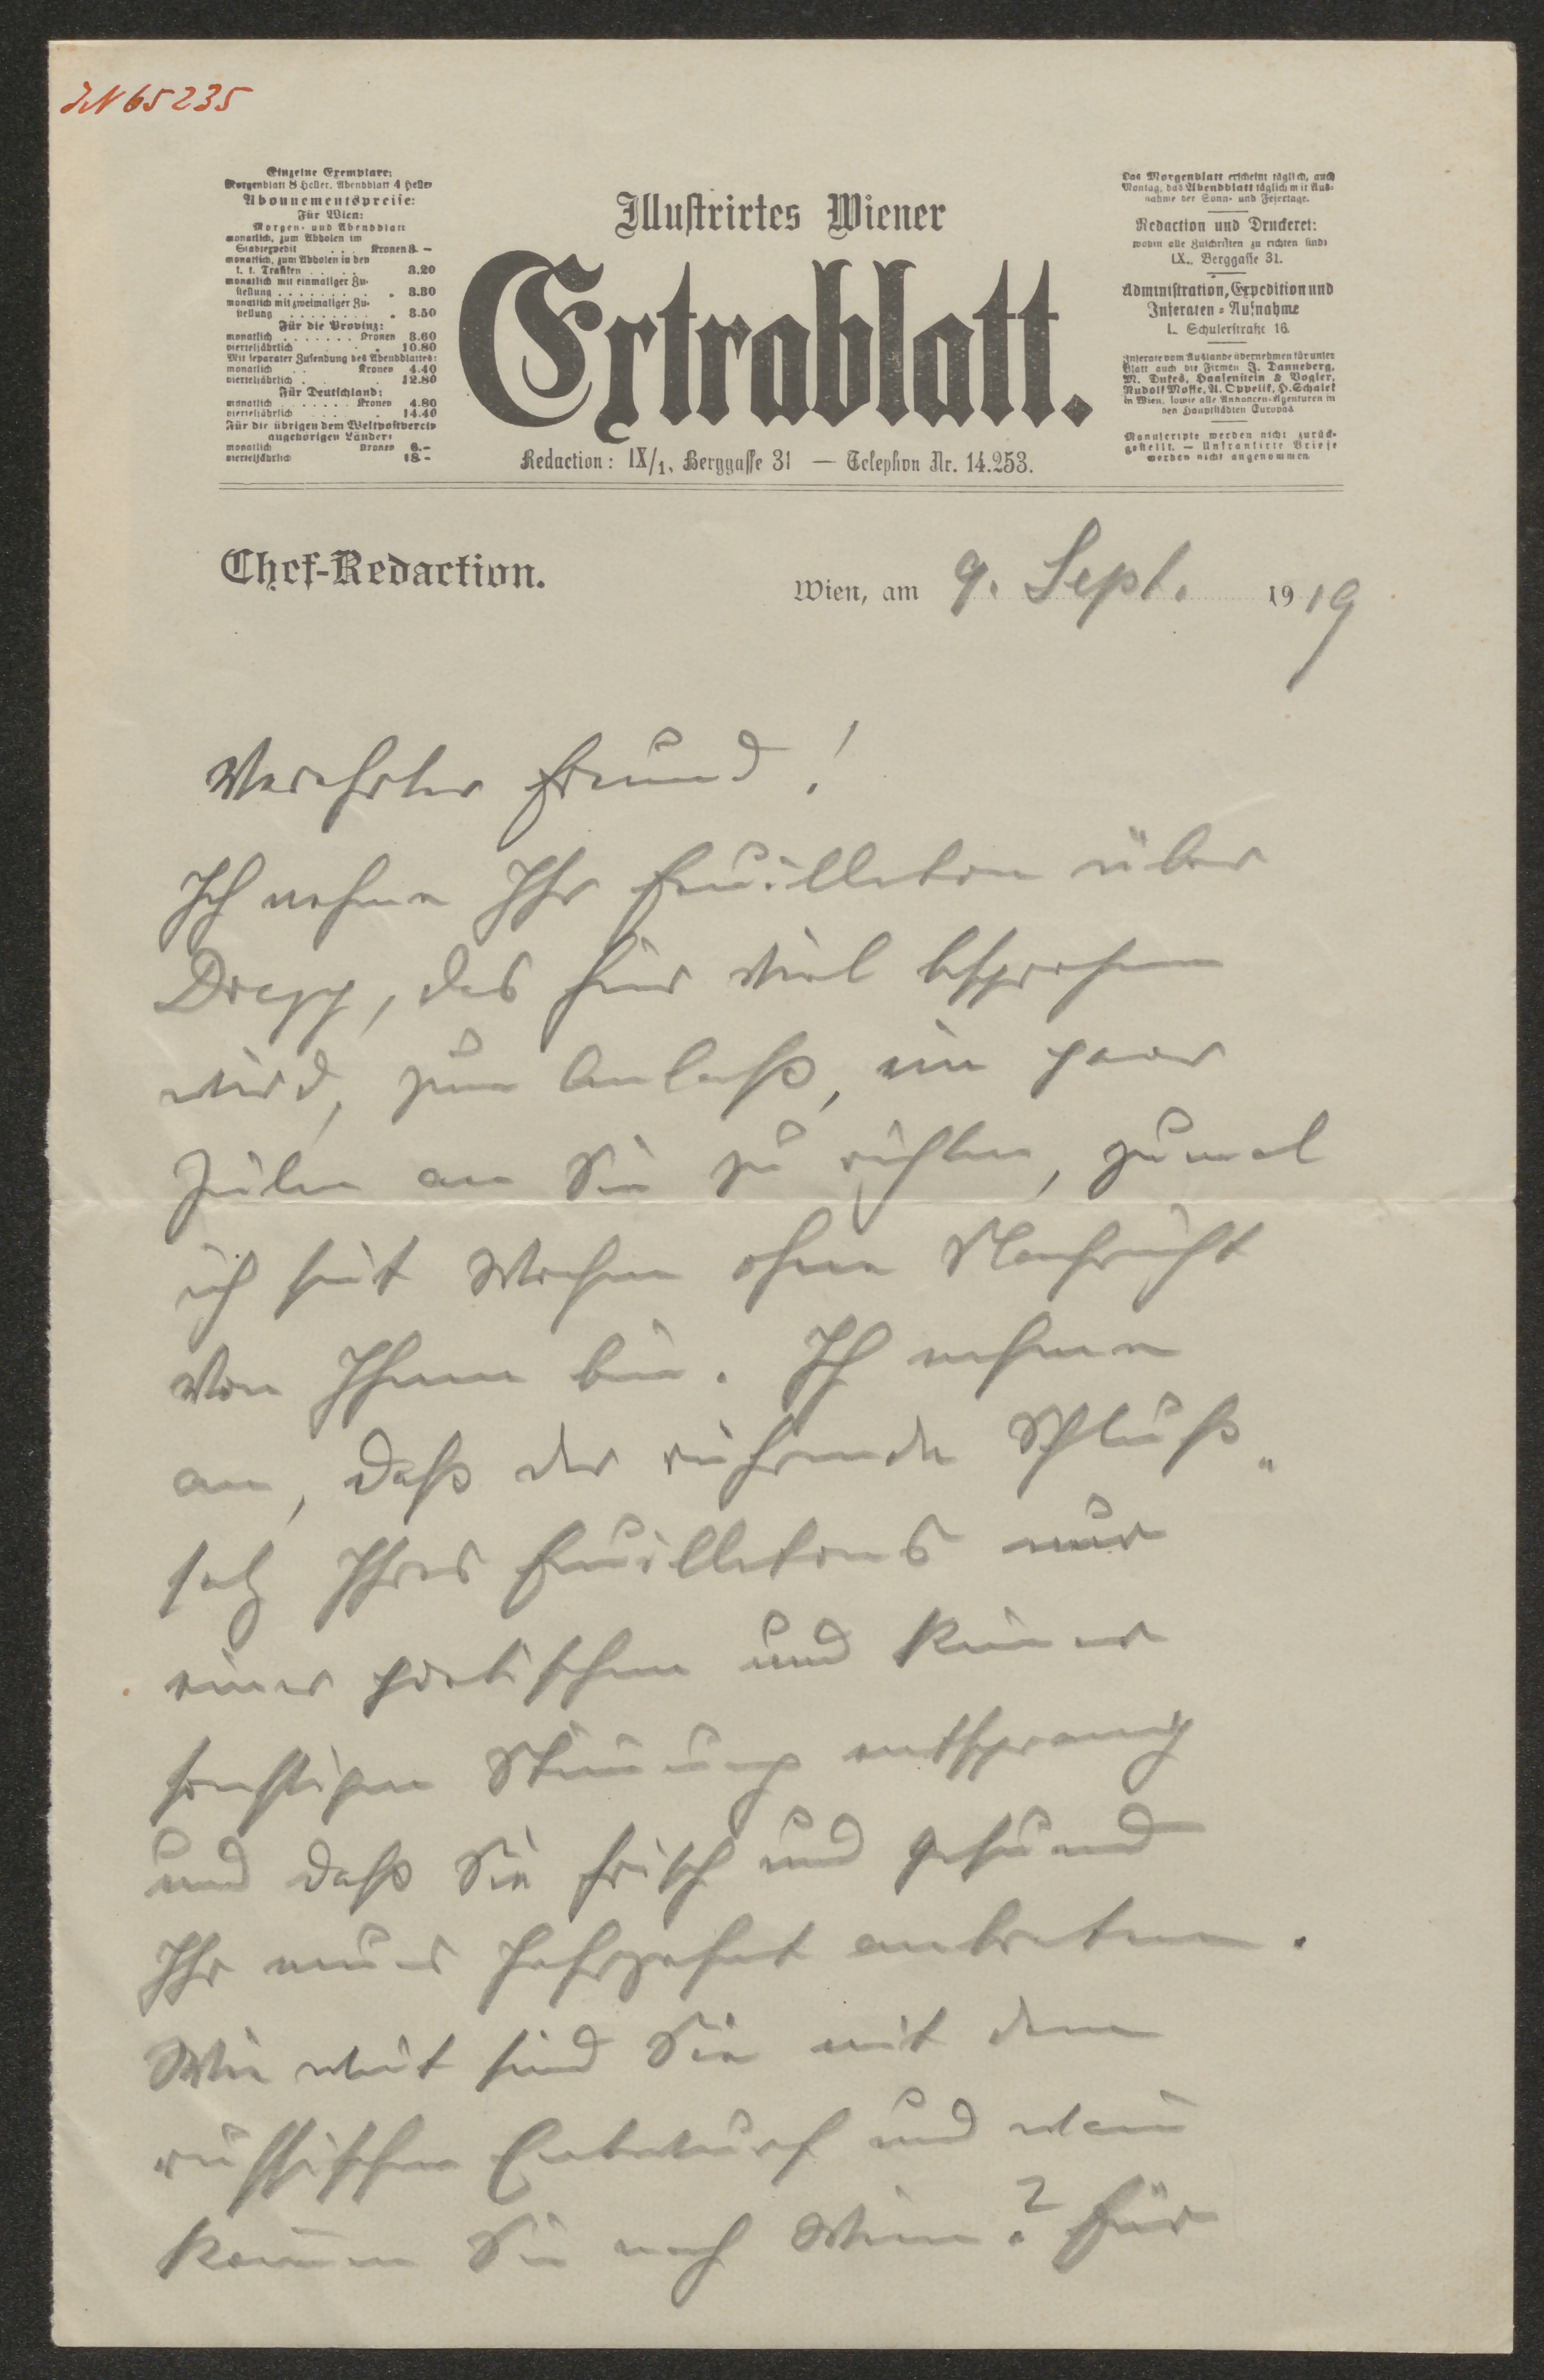 JN 65235
Einzelne Exemplare:
Morgenblatt 8 Heller, Abendblatt 4 Heller
Abonnementspreise:
Für Wien:
Morgen- und Abendblatt
monatlich, zum Abholen im
Stadtexpedit . . . Kronen 3.–
monatlich, zum Abholen in den
k. k. Trafiken . . . . . 3.20
monatlich mit einmaliger Zu-
stellung . . . . . . . . . 3.30
monatlich mit zweimaliger Zu-
stellung . . . . . . . . . 3.50
Für die Provinz:
monatlich . . . . . . . Kronen 3.60
vierteljährlich . . . 10.80
Mit separater Zusendung des Abendblattes:
monatlich . . Kronen 4.40
vierteljährlich . . . . . 12.80
Für Deutschland:
monatlich . . . . . . . Kronen 4.80
vierteljährlich . . . . . . 14.40
Für die übrigen dem Weltpostverein
angehörigen Länder:
monatlich Kronen 6.–
vierteljährlich 18–
Illustrirtes Wiener
Extrablatt.
Redaction: IX/1, Berggasse 31 — Telephon Nr. 14.253.
Das Morgenblatt erscheint täglich, auch
Montag, das Abendblatt täglich mit Aus-
nahme der Sonn- und Feiertage.
Redaction und Druckerei:
wohin alle Zuschriften zu richten sind:
IX., Berggasse 31.
Administration, Expedition und
Inseraten-Aufnahme
I., Schulerstraße 16.
Inserate vom Auslande übernehmen für unser
Blatt auch die Firmen J. Danneberg,
M. Dukes, Haasenstein & Vogler,
Rudolf Mosse, A. Oppelik, H. Schalek
in Wien, sowie alle Annoncen-Agenturen in
den Hauptstädten Europas.
Manuscripte werden nicht zurück-
gestellt. — Unfrankirte Briefe
werden nicht angenommen.
Chef-Redaction.
Wien, am 9. Sept. 1919
Verehrter Freund!
Ich nehme Ihr Feuilleton über
das hier viel besprochen
wird, zum Anlaß, ein paar
Zeilen an Sie zu richten, zumal
ich seit Wochen ohne Nachricht
von Ihnen bin. Ich nehme
an, daß der rührende Schluß-
satz Ihres Feuilletons nur
einer poetischen und keiner
sonstigen Stimmung entsprang
und daß Sie frisch und gesund
Ihr neues Jahrzehnt antreten.
Wie weit sind Sie mit dem
russischen Entwurf und wann
kommen Sie nach Wien? Für